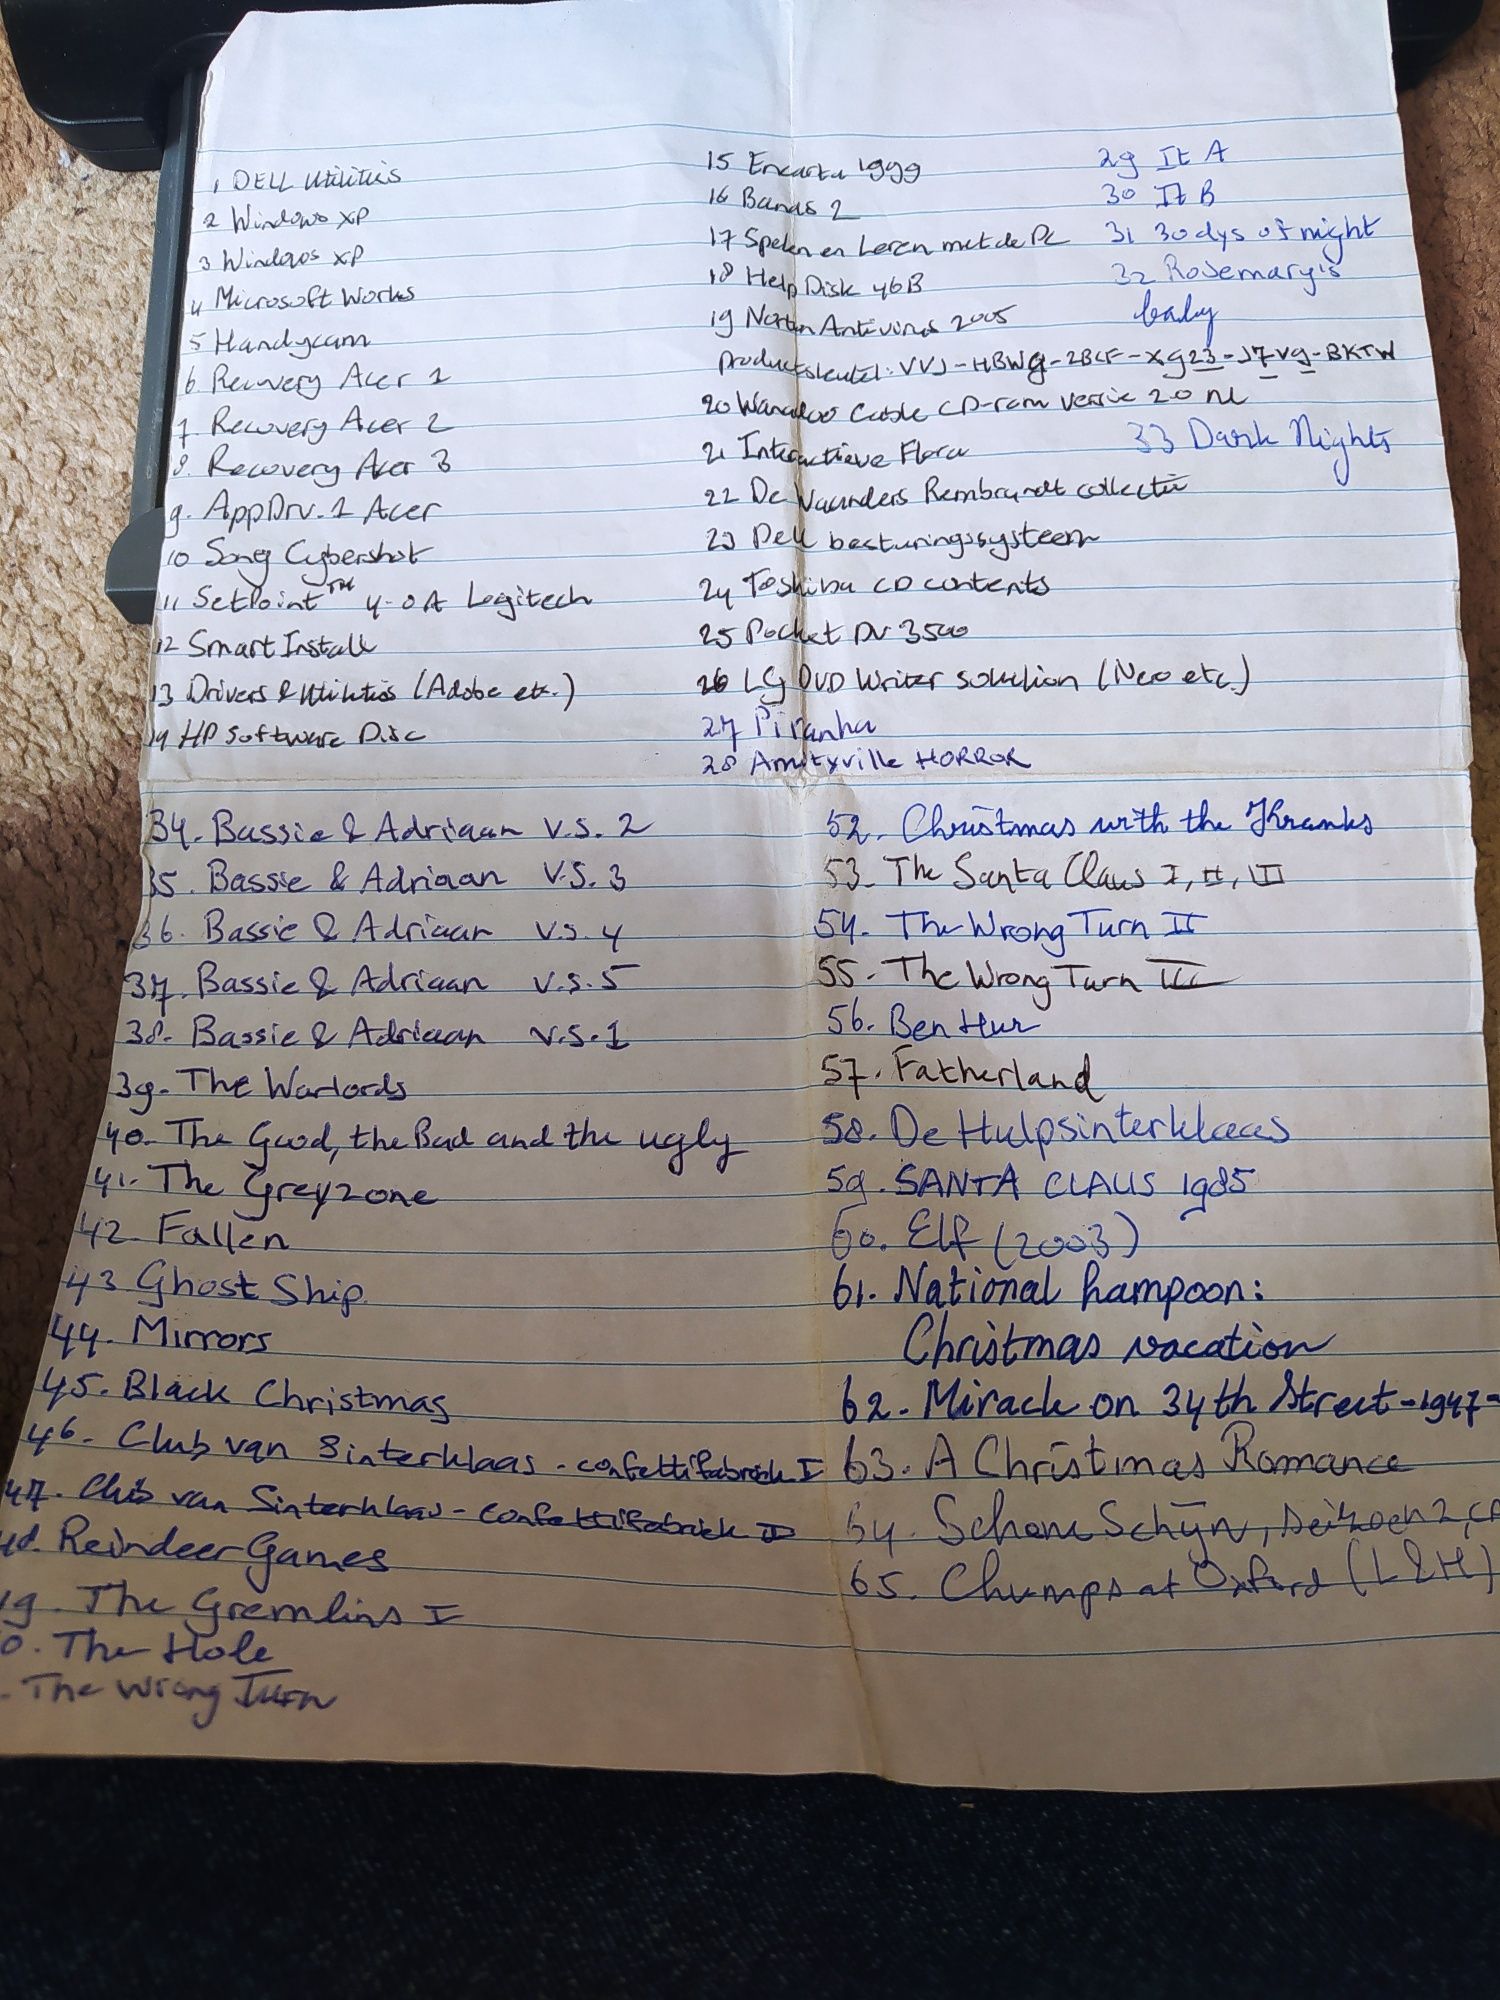 1 DELL Utilities
2 Windows XP
3 Windows XP
4 Microsoft Works
5 Handycam
6. Recovery Acer 1
7. Recovery Acer 2
8. Recovery Acer 3
9. AppDrv. 1 Acer
10 Sony Cybershot
11 SetPoint™ 4.0A Logitech
12 Smart Install
13 Drivers & Utilities (Adobe etc.)
14 HP Software Disc
15 Encarta 1999
16 Banas 2
17 Spelen en Leren met de PC
18 Help Disk 46B
19 Norton Antivirus 2005
productsleutel: VVJ-HBWg-2BCF-Xg23-J7Vg-BKTW
20 Wanadoo Cable CD-rom versie 2.0 NL
21 Interactieve Flora
22 De Waanders Rembrandt collectie
23 Dell besturingssysteem
24 Toshiba CD contents
25 Pocket DV 3500
26 LG DVD Writer solution (Neo etc.)
27 Piranha
28 Amityville HORROR
29 It A
30 It B
31 30 dys of night
32 Rosemary's
baby
33 Dark Nights
34. Bassie & Adriaan V.S. 2
35. Bassie & Adriaan V.S. 3
36. Bassie & Adriaan V.S. 4
37. Bassie & Adriaan V.S. 5
38. Bassie & Adriaan V.S. 1
39. The Warlords
40. The Good, the Bad and the ugly
41. The Greyzone
42. Fallen
43 Ghost Ship
44. Mirrors
45. Black Christmas
46. Club van Sinterklaas - confettifabriek I
47. Club van Sinterklaas - confettifabriek II
48. Reindeer Games
49. The Gremlins I
0. The Hole
. The Wrong Turn
52. Christmas with the Kranks
53. The Santa Claus I, II, III
54. The Wrong Turn II
55. The Wrong Turn III
56. Ben Hur
57. Fatherland
58. De Hulpsinterklaas
59. SANTA CLAUS 1985
60. Elf (2003)
61. National Lampoon:
Christmas vacation
62. Miracle on 34th Street -1947-
63. A Christmas Romance
64. Schone Schijn, seizoen 2,
65. Chumps at Oxford (L&H)